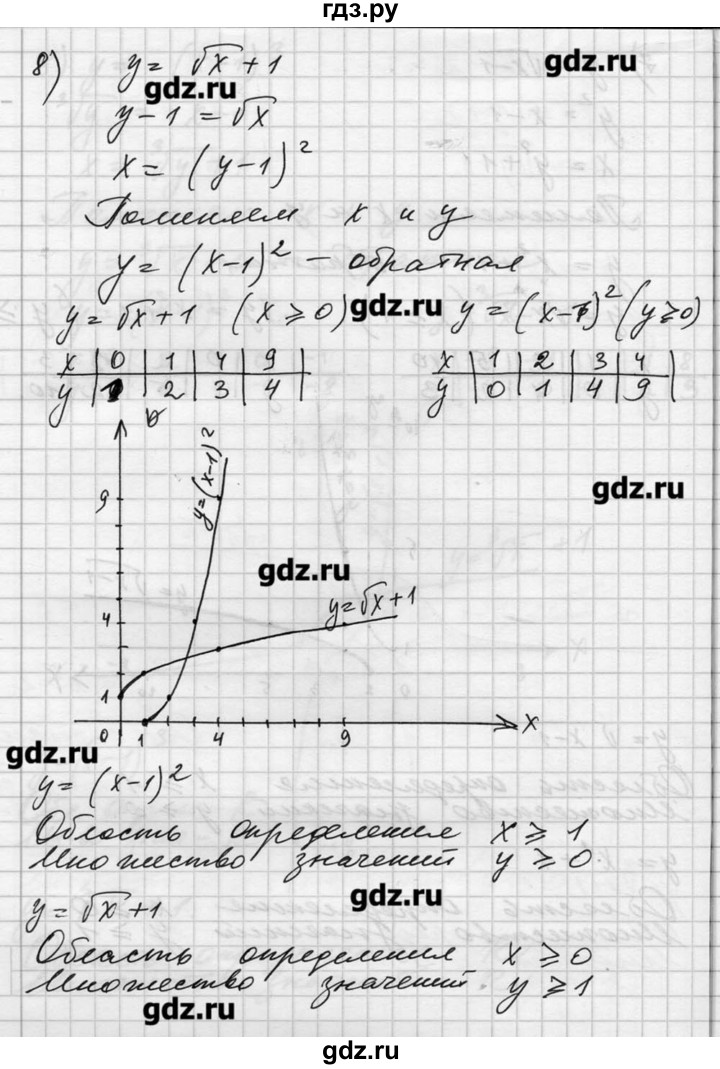 гдз.ру
8) y = √x + 1
gdz.ru
gdz.ru
y - 1 = √x
x = (y-1)²
Поменяем x и y
y = (x-1)² - обратная
y = √x + 1 (x ⩾ 0) gdz.ru y = (x-1)² (y ⩾ 0)
x | 0 | 1 | 4 | 9 |
y | 1 | 2 | 3 | 4 |
x | 1 | 2 | 3 | 4 |
y | 0 | 1 | 4 | 9 |
y
y=(x-1)²
9
gdz.ru
gdz.ru
y=√x+1
4
1
0 1 4 9 x
gdz.ru
y = (x-1)²
Область определения x ⩾ 1
Множество значений y ⩾ 0
gdz.ru
y = √x + 1
Область определения x ⩾ 0
Множество значений y ⩾ 1
gdz.ru
gdz.ru